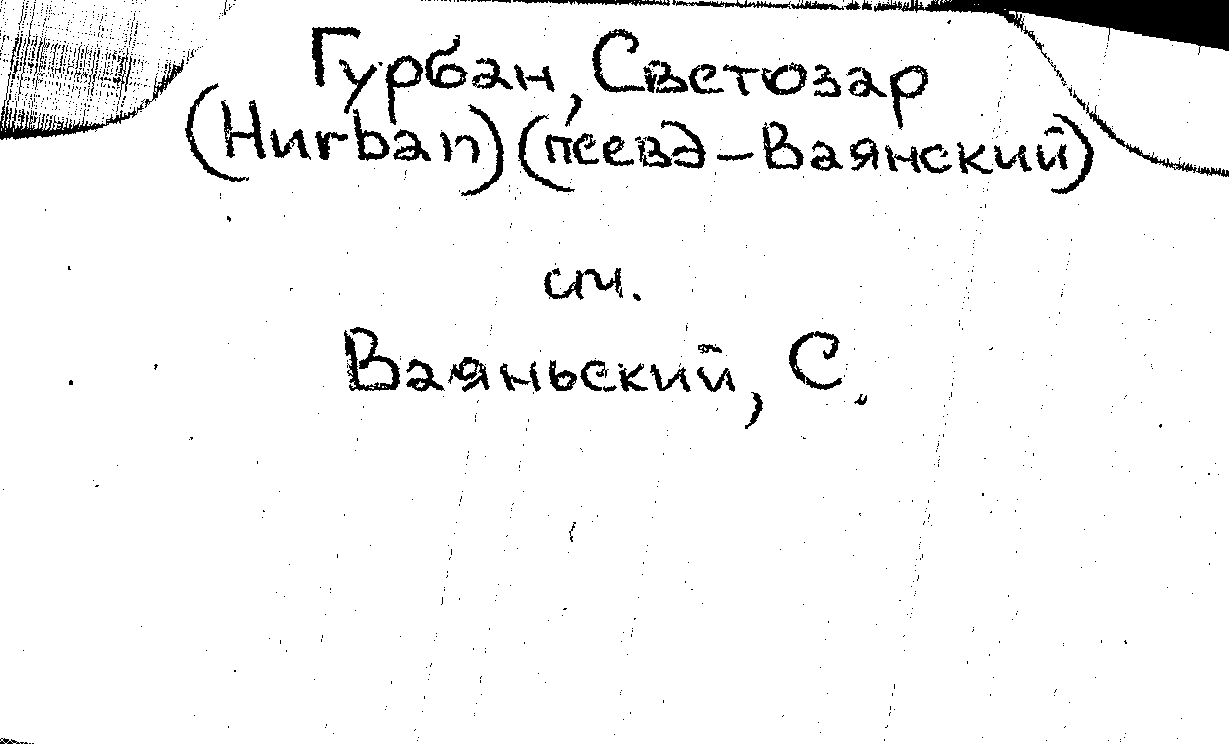 Гурбан, Светозар
(Hurban) (псевд-Ваянский)
см.
Ваяньский, С.